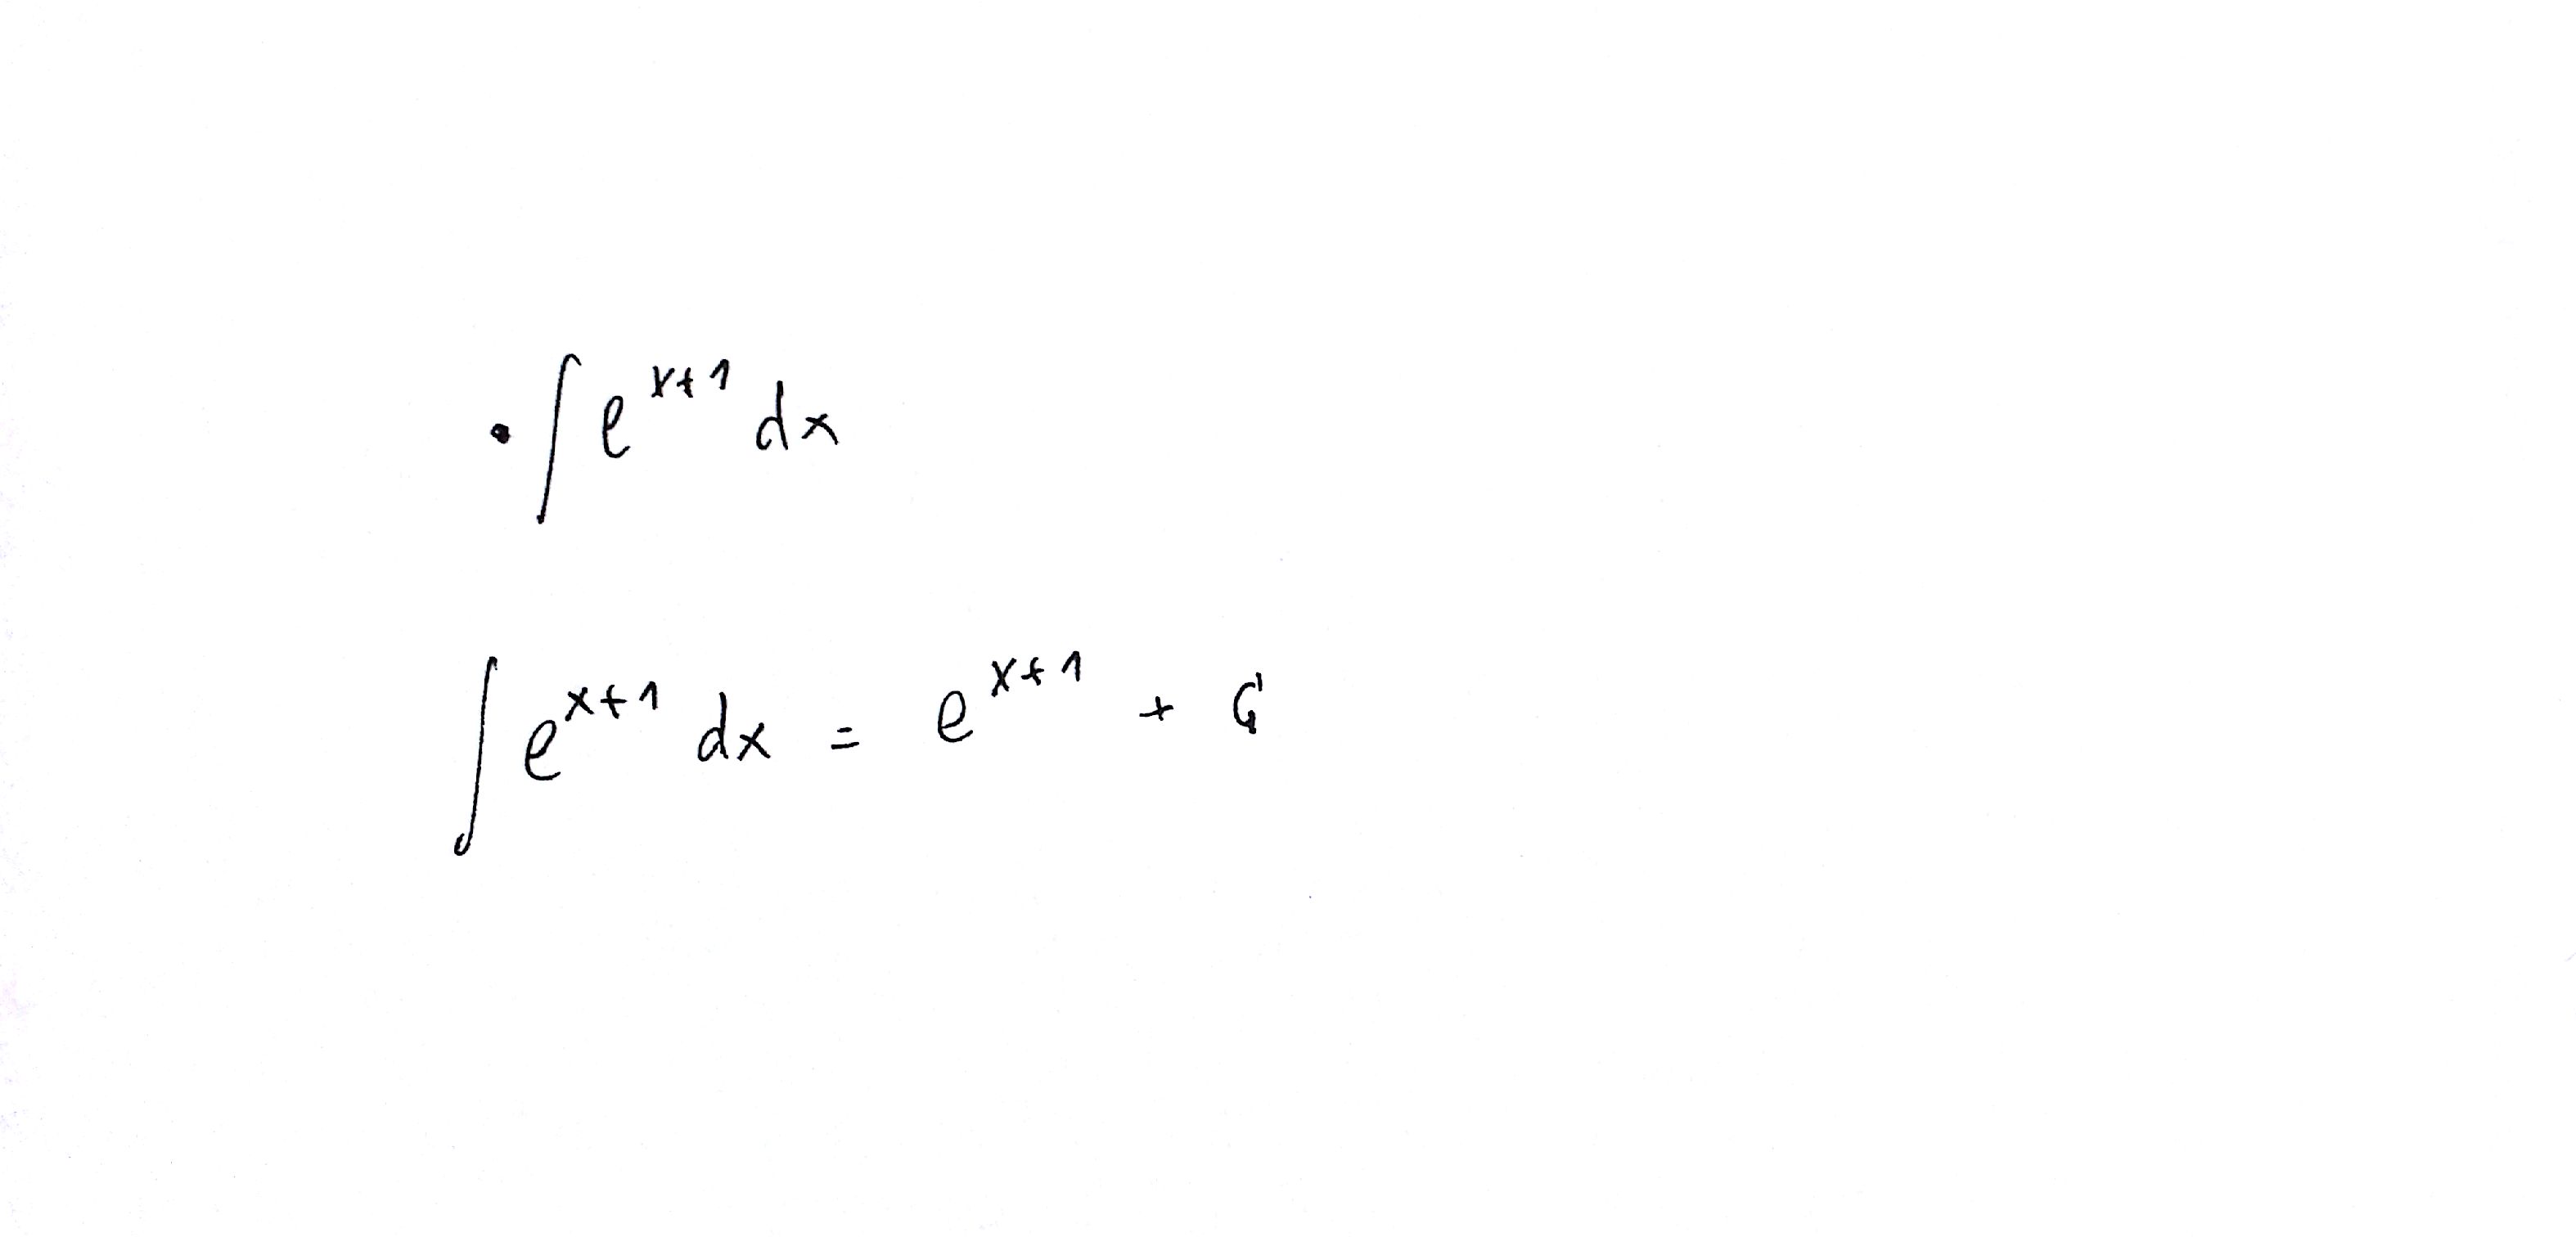 • ∫ e^{x+1} dx
∫ e^{x+1} dx = e^{x+1} + C